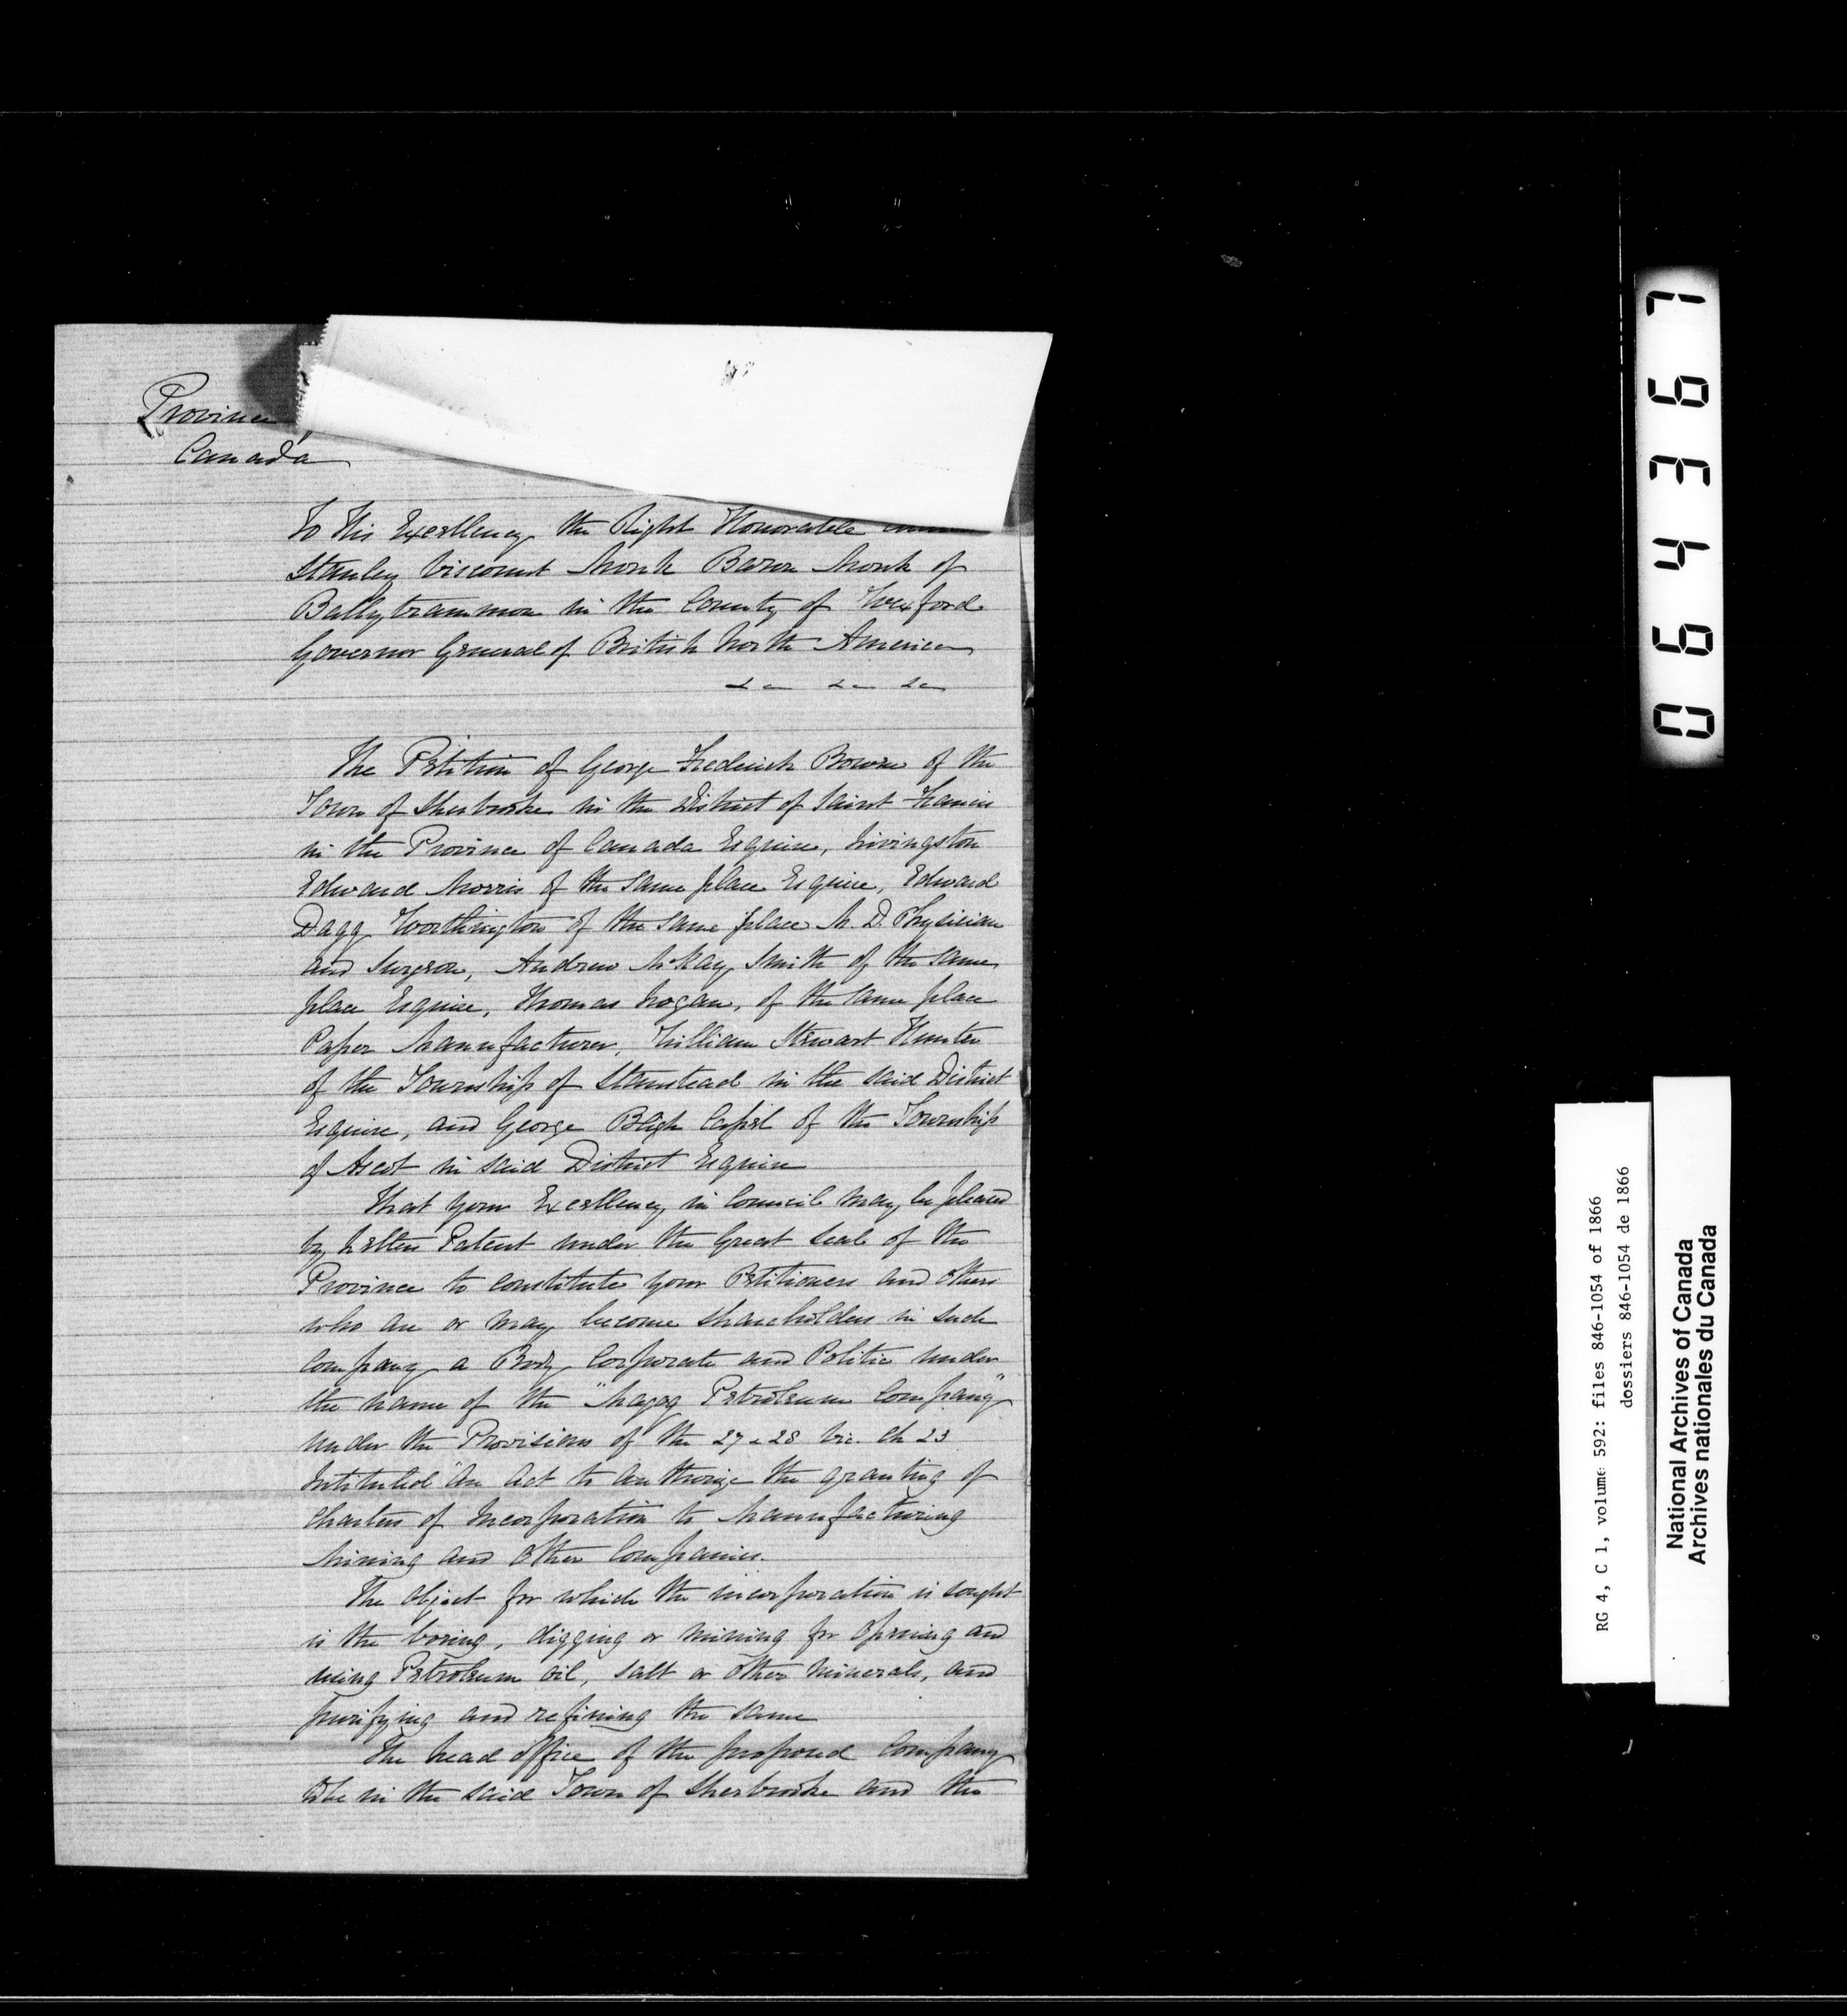 Province
Canada
To His Excellency the Right Honorable
Stanley Viscount Monk Baron Monk of
Ballytrammon in the County of Wexford
Governor General of British North America
&c &c &c
The Petition of George Frederick Bowen of the
Town of Sherbrooke in the District of Saint Francis
in the Province of Canada Esquire, Livingston
Edward Morris of the same place Esquire, Edward
Dagg Worthington of the same place M. D. Physician
and Surgeon, Andrew McKay Smith of the same
place Esquire, Thomas Logan, of the same place
Paper Manufacturer, William Stewart Hunter
of the Township of Stanstead in the said District
Esquire, and George Bligh Capel of the Township
of Ascot in said District Esquire
That your Excellency in Council may be pleased
by Letters Patent under the Great Seal of the
Province to constitute your Petitioners and others
who are or may become shareholders in such
Company a Body Corporate and Politic under
the name of the "Magog Petroleum Company"
under the Provisions of the 27 & 28 Vic. Ch 23
Intituled "An Act to Authorize the granting of
Charters of Incorporation to Manufacturing
Mining and other Companies.
The object for which the incorporation is sought
is the boring, digging or mining for opening and
using Petroleum oil, salt or other minerals, and
purifying and refining the same
The head office of the proposed Company
to be in the said Town of Sherbrooke and the
064367
RG 4, C 1, volume 592: files 846-1054 of 1866
dossiers 846-1054 de 1866
National Archives of Canada
Archives nationales du Canada